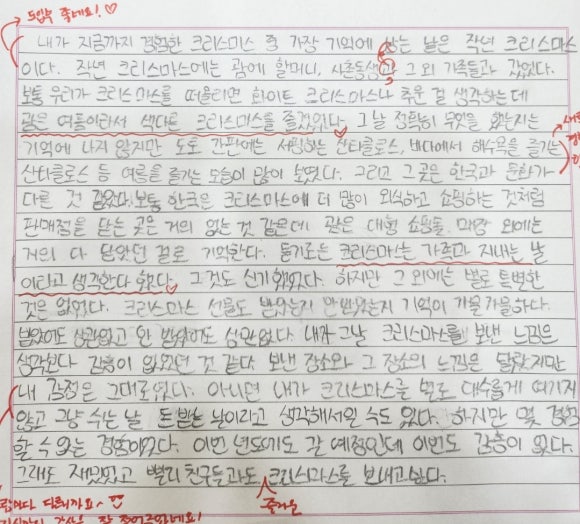 도입부 좋네요! ♡
내가 지금까지 경험한 크리스마스 중 가장 기억에 남는 날은 작년 크리스마스
이다. 작년 크리스마스에는 괌에 할머니, 사촌동생과 그 외 가족들과 갔었다.
보통 우리가 크리스마스를 떠올리면 화이트 크리스마스나 추운 걸 생각하는데
괌은 여름이라서 색다른 크리스마스를 즐겼었다. 그 날 정확히 무엇을 했는지는
기억에 나지 않지만 도로 간판에는 서핑하는 산타클로스, 바다에서 해수욕을 즐기는
산타클로스 등 여름을 즐기는 모습이 많이 보였다. 그리고 그 곳은 한국과 문화가
다른 것 같았다. 보통 한국은 크리스마스에 더 많이 외식하고 쇼핑하는 것처럼
판매점을 닫는 곳은 거의 없는 것 같은데 괌은 대형 쇼핑몰, 매장 외에는
거의 다 닫았던 걸로 기억한다. 듣기로는 크리스마스는 가족과 지내는 날
이라고 생각한다 했다. 그것도 신기했었다. 하지만 그 외에는 별로 특별한
것은 없었다. 크리스마스 선물도 받았는지 안받았는지 기억이 가물가물하다.
받았어도 상관없고 안 받았어도 상관없다. 내가 그날 크리스마스를 보낸 느낌은
생각보다 감흥이 없었던 것 같다. 보낸 장소와 그 장소의 느낌은 달랐지만
내 감정은 그대로였다. 아니면 내가 크리스마스를 별로 대수롭게 여기지
않고 그냥 쉬는 날, 돈 받는 날이라고 생각해서일 수도 있다. 하지만 몇 경험
할 수 있는 경험이었다. 이번 년도에도 갈 예정인데 이번도 감흥이 없다.
그래도 재밌었고 빨리 친구들과도 크리스마스를 보내고싶다.
즐거운
다르니까요~